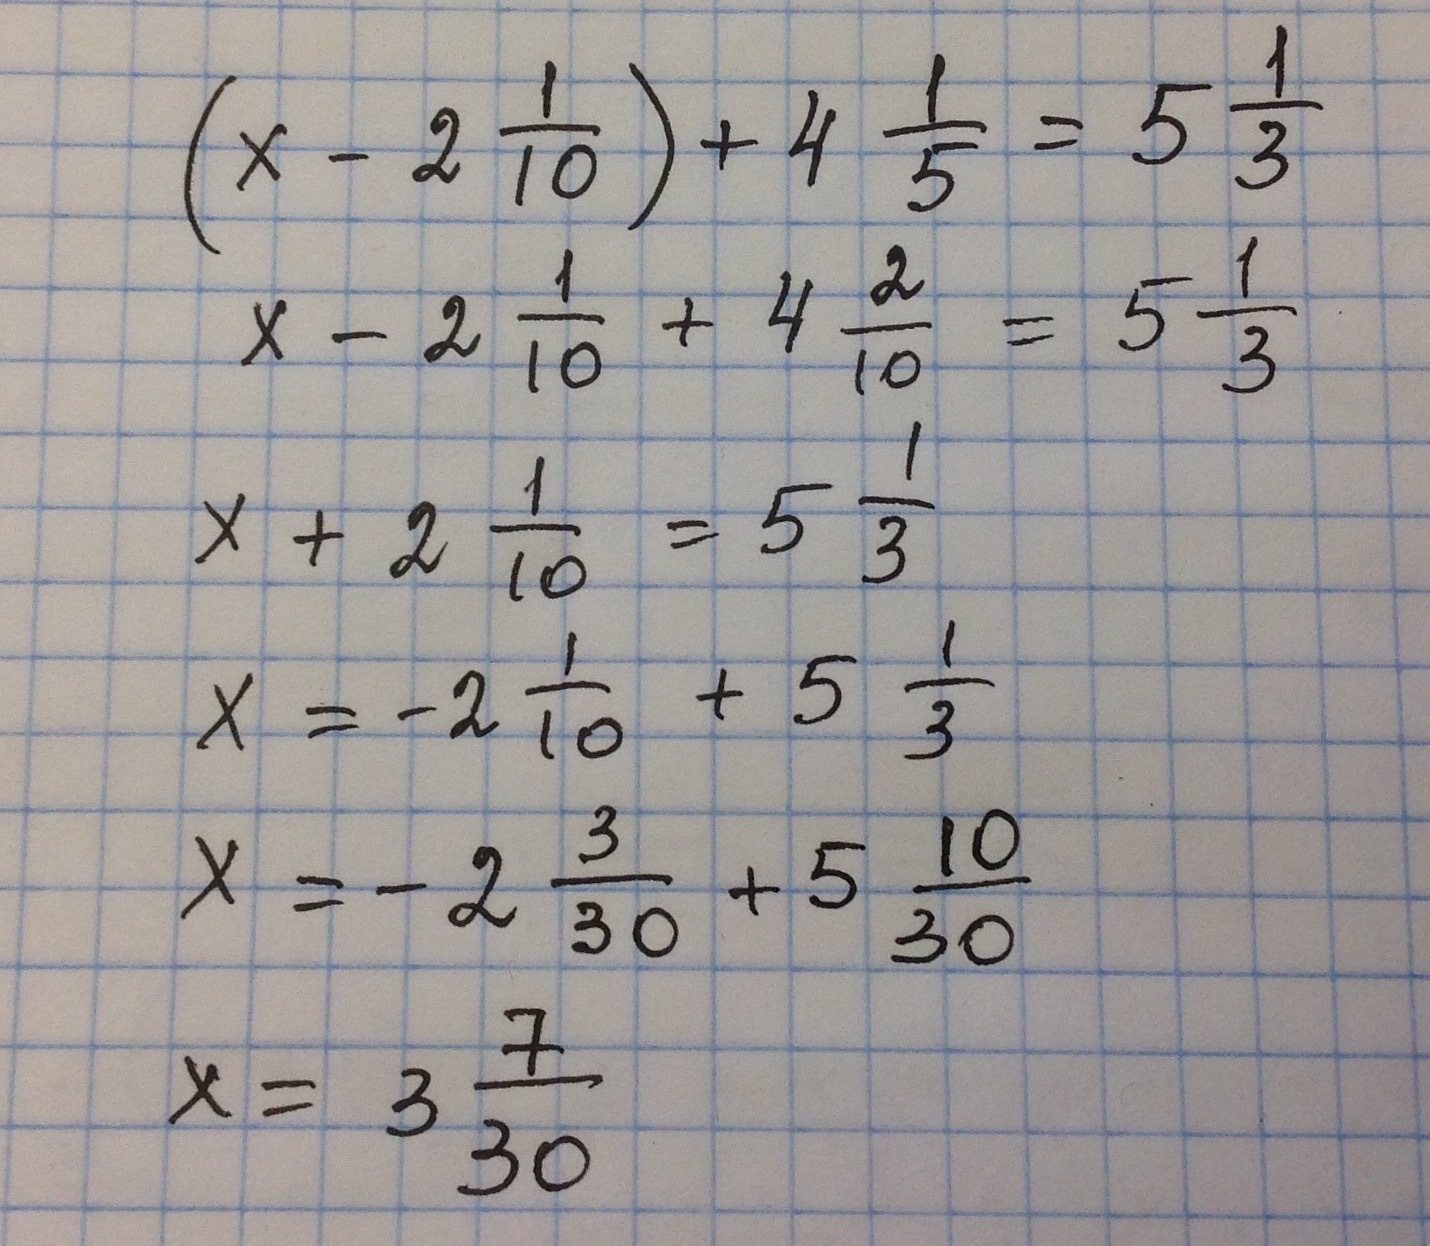 (x - 2 1/10) + 4 1/5 = 5 1/3
x - 2 1/10 + 4 2/10 = 5 1/3
x + 2 1/10 = 5 1/3
x = -2 1/10 + 5 1/3
x = -2 3/30 + 5 10/30
x = 3 7/30